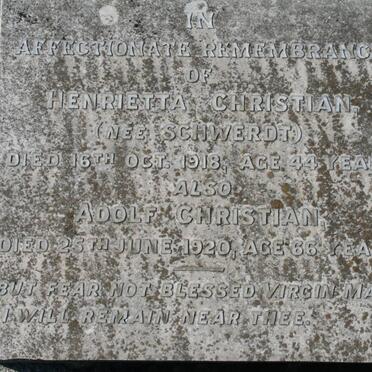 IN
AFFECTIONATE REMEMBRANC
OF
HENRIETTA CHRISTIAN,
(NEE SCHWERDT)
DIED 16TH OCT. 1918, AGE 44 YEAR
ALSO
ADOLF CHRISTIAN,
DIED 25TH JUNE 1920, AGE 66 YEA
BUT FEAR NOT BLESSED VIRGIN MA
I WILL REMAIN NEAR THEE.